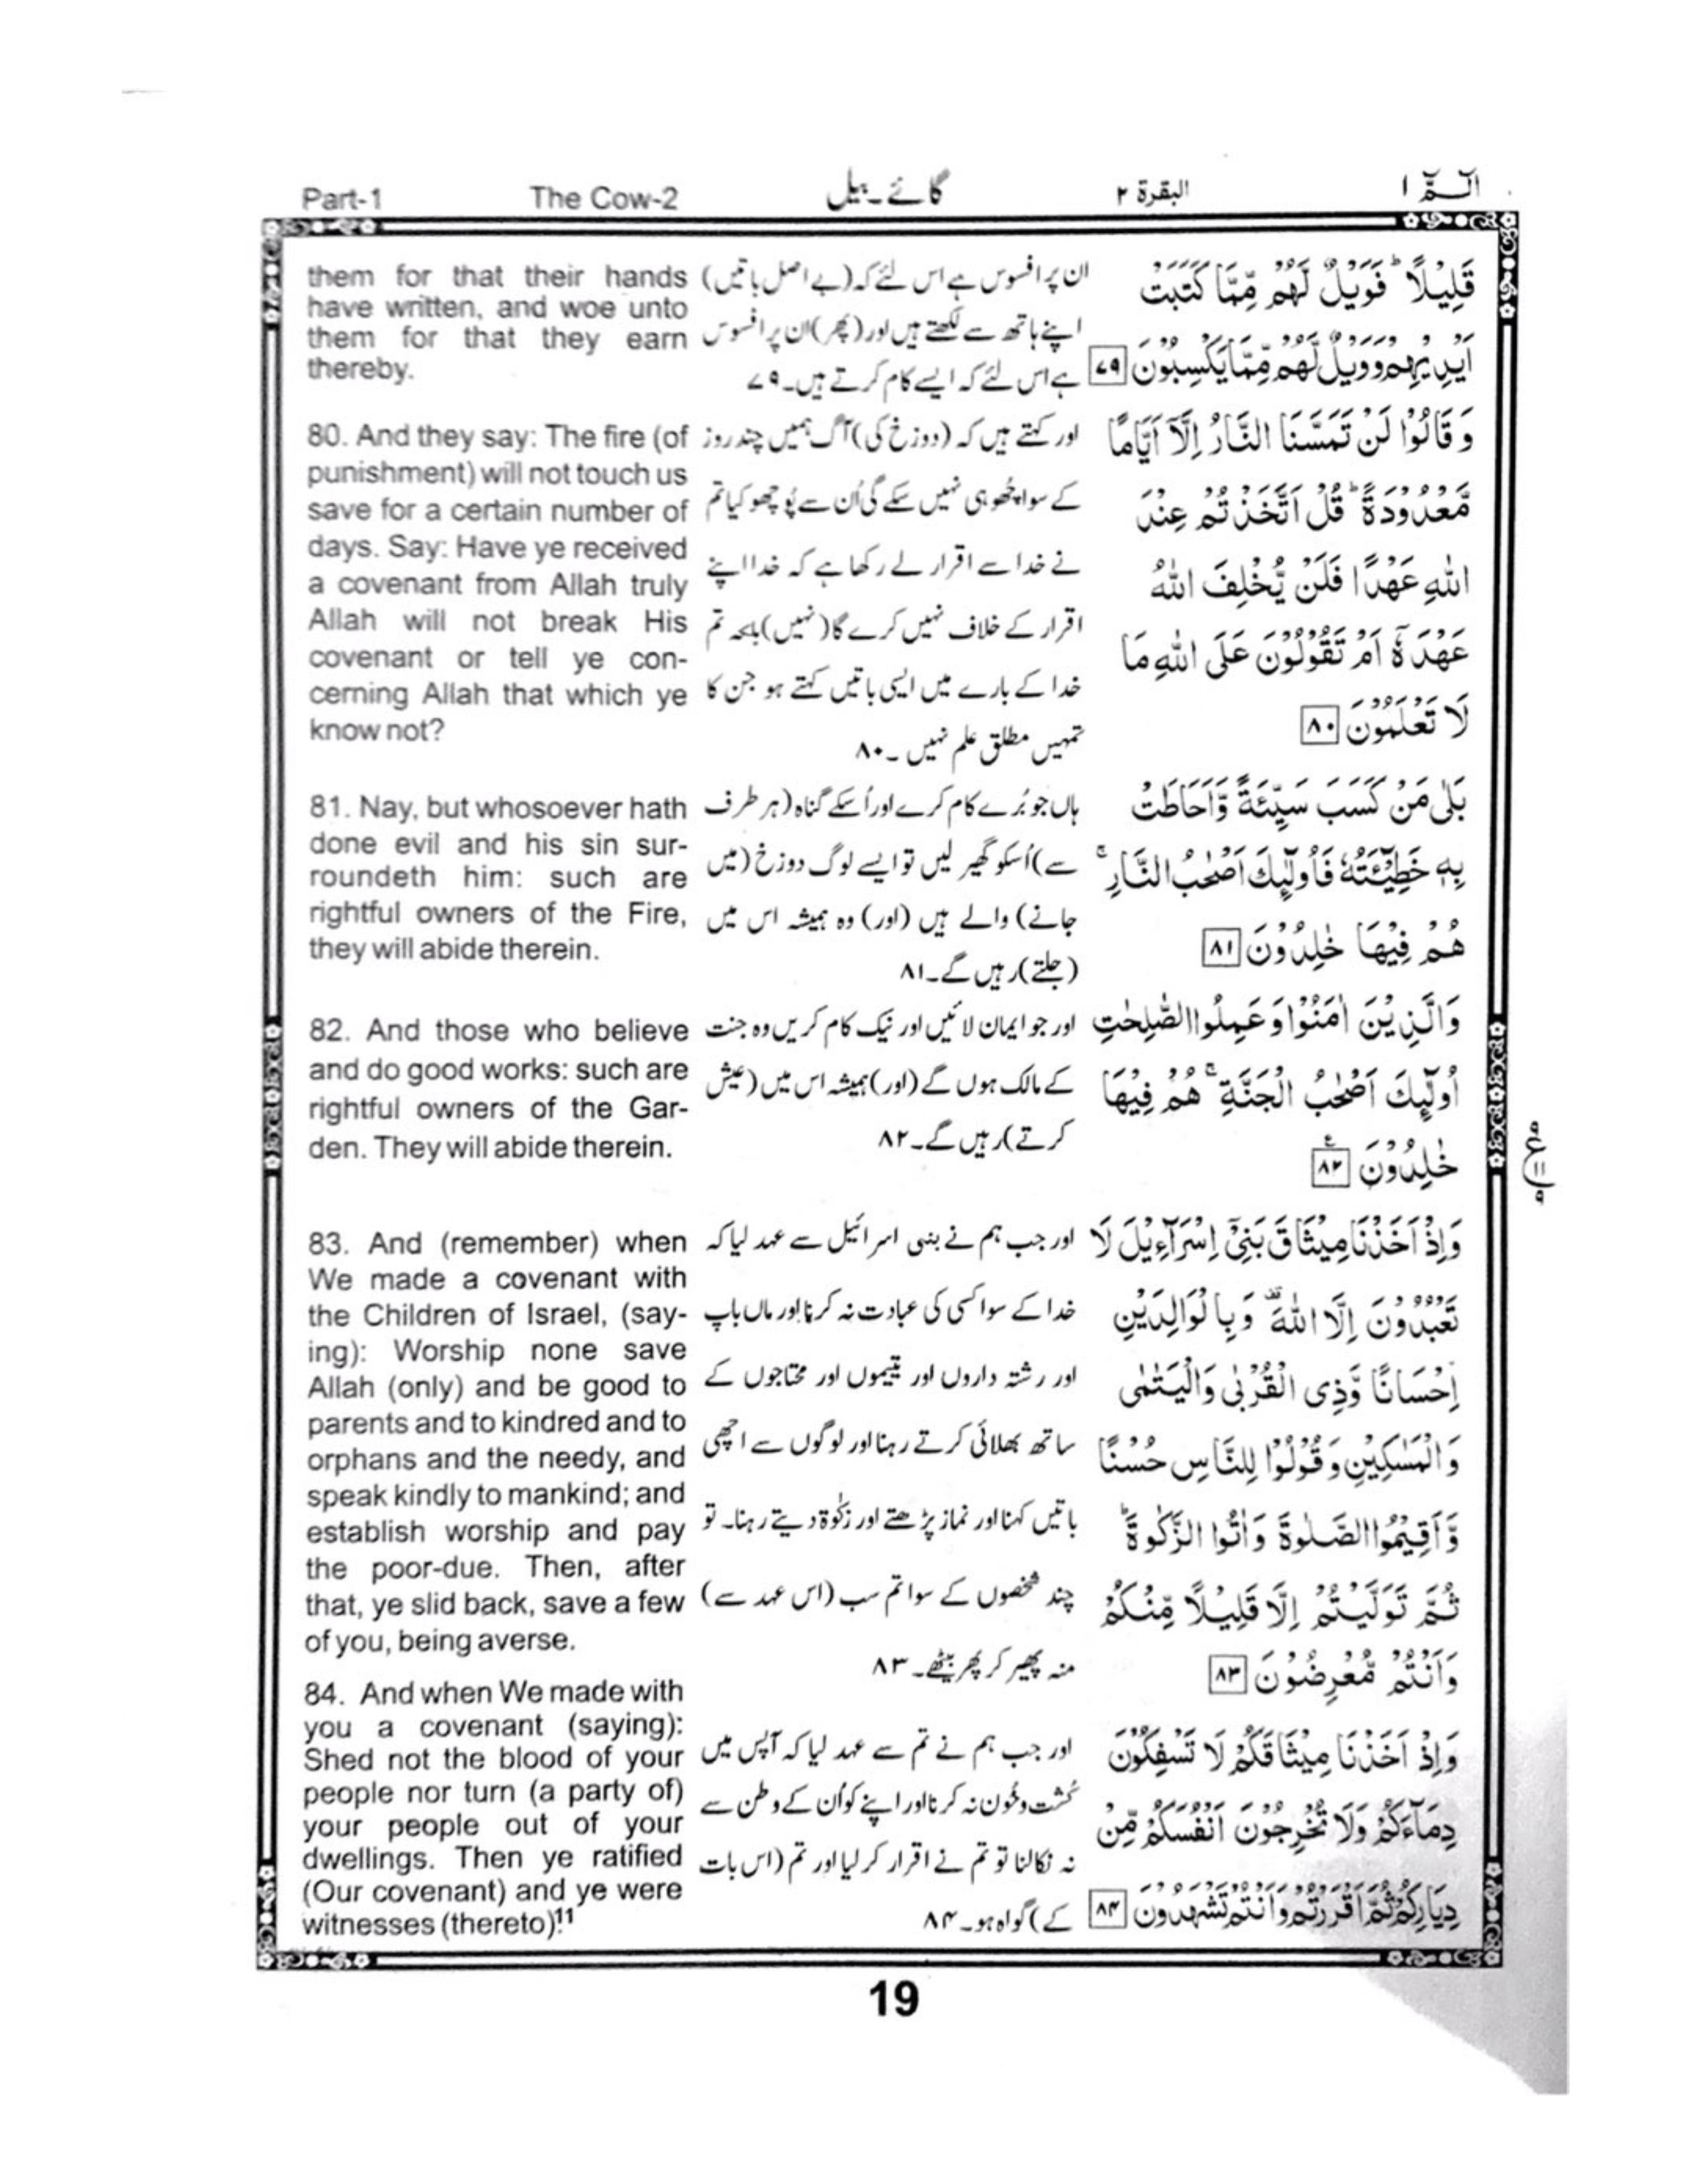 Part-1 The Cow-2 گائے۔بیل البقرة ٢ الٓمّٓ ١
them for that their hands
have written, and woe unto
them for that they earn
thereby.
80. And they say: The fire (of
punishment) will not touch us
save for a certain number of
days. Say: Have ye received
a covenant from Allah truly
Allah will not break His
covenant or tell ye con-
cerning Allah that which ye
know not?
81. Nay, but whosoever hath
done evil and his sin sur-
roundeth him: such are
rightful owners of the Fire,
they will abide therein.
82. And those who believe
and do good works: such are
rightful owners of the Gar-
den. They will abide therein.
83. And (remember) when
We made a covenant with
the Children of Israel, (say-
ing): Worship none save
Allah (only) and be good to
parents and to kindred and to
orphans and the needy, and
speak kindly to mankind; and
establish worship and pay
the poor-due. Then, after
that, ye slid back, save a few
of you, being averse.
84. And when We made with
you a covenant (saying):
Shed not the blood of your
people nor turn (a party of)
your people out of your
dwellings. Then ye ratified
(Our covenant) and ye were
witnesses (thereto)!¹¹
ان پر افسوس ہے اس لئے کہ (بے اصل باتیں)
اپنے ہاتھ سے لکھتے ہیں اور (پھر) ان پر افسوس
ہے اس لئے کہ ایسے کام کرتے ہیں۔۷۹
اور کہتے ہیں کہ (دوزخ کی) آگ ہمیں چند روز
کے سوا چُھو ہی نہیں سکے گی اُن سے پُوچھو کیا تم
نے خدا سے اقرار لے رکھا ہے کہ خدا اپنے
اقرار کے خلاف نہیں کرے گا (نہیں) بلکہ تم
خدا کے بارے میں ایسی باتیں کہتے ہو جن کا
تمہیں مطلق علم نہیں ۔۸۰
ہاں جو بُرے کام کرے اور اُسکے گناہ (ہر طرف
سے) اُسکو گھیر لیں تو ایسے لوگ دوزخ (میں
جانے) والے ہیں (اور) وہ ہمیشہ اس میں
(جلتے) رہیں گے۔۸۱
اور جو ایمان لائیں اور نیک کام کریں وہ جنت
کے مالک ہوں گے (اور) ہمیشہ اس میں (عیش
کرتے) رہیں گے۔۸۲
اور جب ہم نے بنی اسرائیل سے عہد لیا کہ
خدا کے سوا کسی کی عبادت نہ کرنا اور ماں باپ
اور رشتہ داروں اور یتیموں اور محتاجوں کے
ساتھ بھلائی کرتے رہنا اور لوگوں سے اچھی
باتیں کہنا اور نماز پڑھتے اور زکٰوۃ دیتے رہنا۔ تو
چند شخصوں کے سوا تم سب (اس عہد سے)
منہ پھیر کر پھر بیٹھے۔۸۳
اور جب ہم نے تم سے عہد لیا کہ آپس میں
کُشت و خُون نہ کرنا اور اپنے کو اُن کے وطن سے
نہ نکالنا تو تم نے اقرار کر لیا اور تم (اس بات
کے) گواہ ہو۔۸۴
قَلِيْلًا ؕ فَوَيْلٌ لَّهُمْ مِّمَّا كَتَبَتْ
اَيْدِيْهِمْ وَوَيْلٌ لَّهُمْ مِّمَّا يَكْسِبُوْنَ ٧٩
وَ قَالُوْا لَنْ تَمَسَّنَا النَّارُ اِلَّآ اَيَّامًا
مَّعْدُوْدَةً ؕ قُلْ اَتَّخَذْتُمْ عِنْدَ
اللّٰهِ عَهْدًا فَلَنْ يُّخْلِفَ اللّٰهُ
عَهْدَهٗٓ اَمْ تَقُوْلُوْنَ عَلَى اللّٰهِ مَا
لَا تَعْلَمُوْنَ ٨٠
بَلٰى مَنْ كَسَبَ سَيِّئَةً وَّاَحَاطَتْ
بِهٖ خَطِيْٓئَتُهٗ فَاُولٰٓئِكَ اَصْحٰبُ النَّارِ ۚ
هُمْ فِيْهَا خٰلِدُوْنَ ٨١
وَالَّذِيْنَ اٰمَنُوْا وَ عَمِلُوا الصّٰلِحٰتِ
اُولٰٓئِكَ اَصْحٰبُ الْجَنَّةِ ۚ هُمْ فِيْهَا
خٰلِدُوْنَ ٨٢ ع
وَاِذْ اَخَذْنَا مِيْثَاقَ بَنِيْٓ اِسْرَآءِيْلَ لَا
تَعْبُدُوْنَ اِلَّا اللّٰهَ ۫ وَ بِالْوَالِدَيْنِ
اِحْسَانًا وَّذِى الْقُرْبٰى وَالْيَتٰمٰى
وَالْمَسٰكِيْنِ وَقُوْلُوْا لِلنَّاسِ حُسْنًا
وَّاَقِيْمُوا الصَّلٰوةَ وَاٰتُوا الزَّكٰوةَ ؕ
ثُمَّ تَوَلَّيْتُمْ اِلَّا قَلِيْلًا مِّنْكُمْ
وَاَنْتُمْ مُّعْرِضُوْنَ ٨٣
وَاِذْ اَخَذْنَا مِيْثَاقَكُمْ لَا تَسْفِكُوْنَ
دِمَآءَكُمْ وَلَا تُخْرِجُوْنَ اَنْفُسَكُمْ مِّنْ
دِيَارِكُمْ ثُمَّ اَقْرَرْتُمْ وَاَنْتُمْ تَشْهَدُوْنَ ٨٤
19